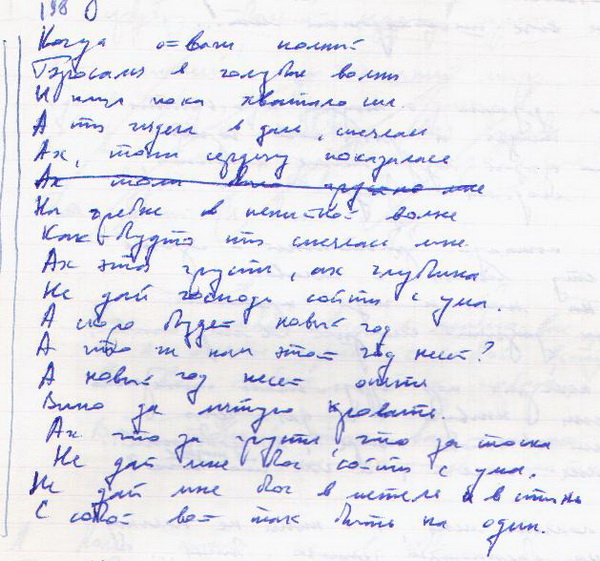 198
Когда о вами полит
Бросался в голубые волны
И плыл пока хватало сил.
А ты сидела в дали, смеялась
Ах, то ли сердцу показалась
Ах то ли было грустно мне
На гребне в пенистой волне
Как будто ты смеялась мне.
Ах эта грусть, ах глубина
Не дай господи сойти с ума.
А скоро будет новый год
А что ж нам этот год несет?
А новый год несет опять
Вино да мятую кровать.
Ах что за грусть что за тоска
Не дай мне бог сойти с ума.
Не дай мне бог в метель и в стынь
С собой вот так быть на один.